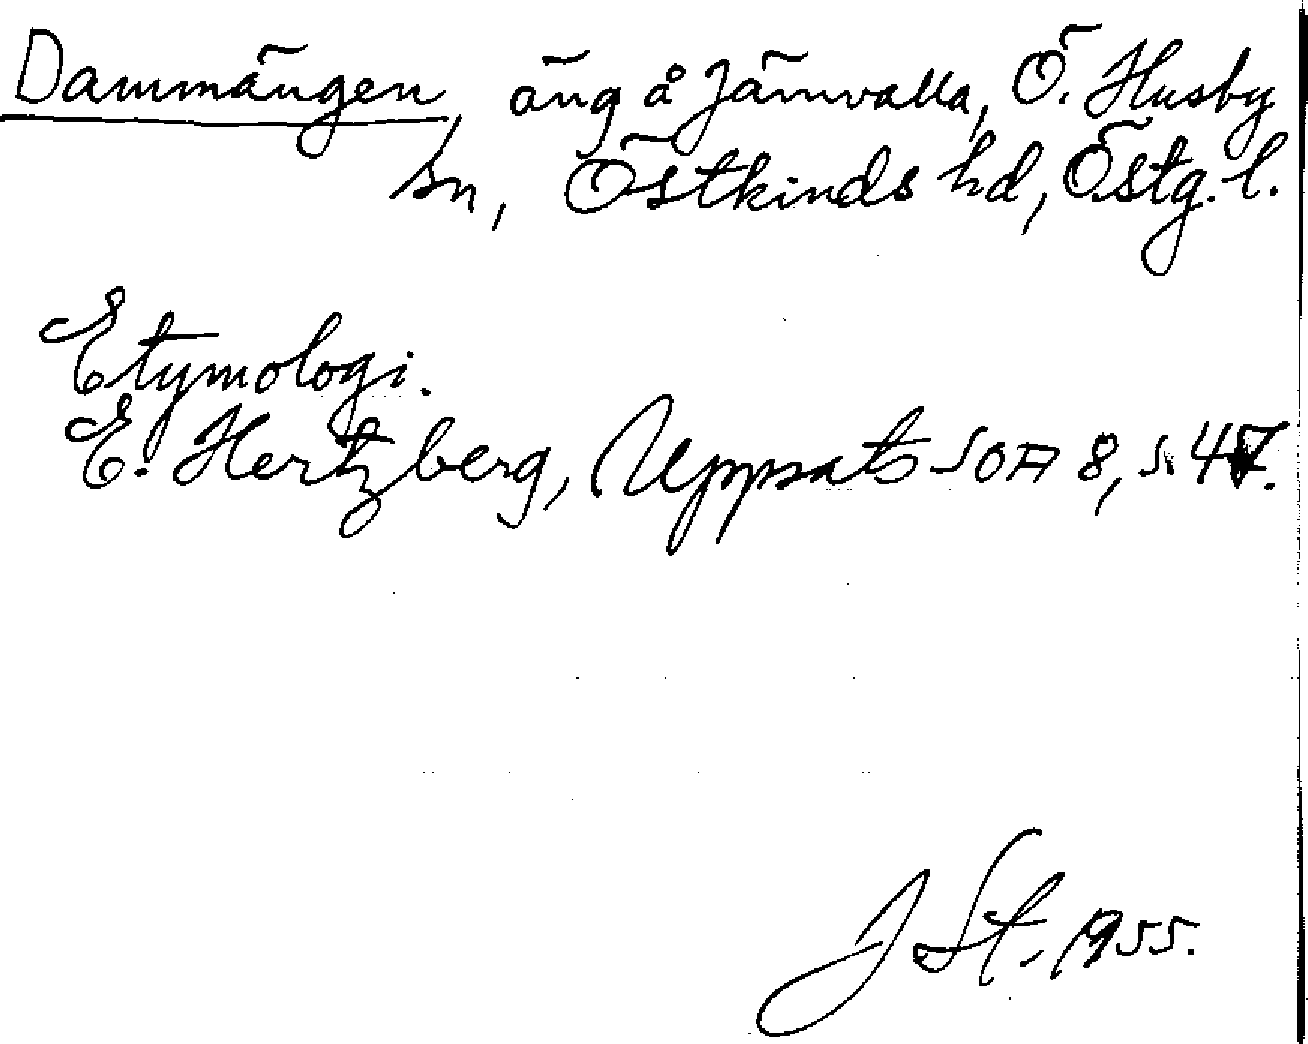 Dammängen, äng å Jämvalla, Ö. Husby
sn, Östkinds hd, Östg. l.
Etymologi.
E. Hertzberg, Uppsats SOA 8, s. 47.
J St. 1955.